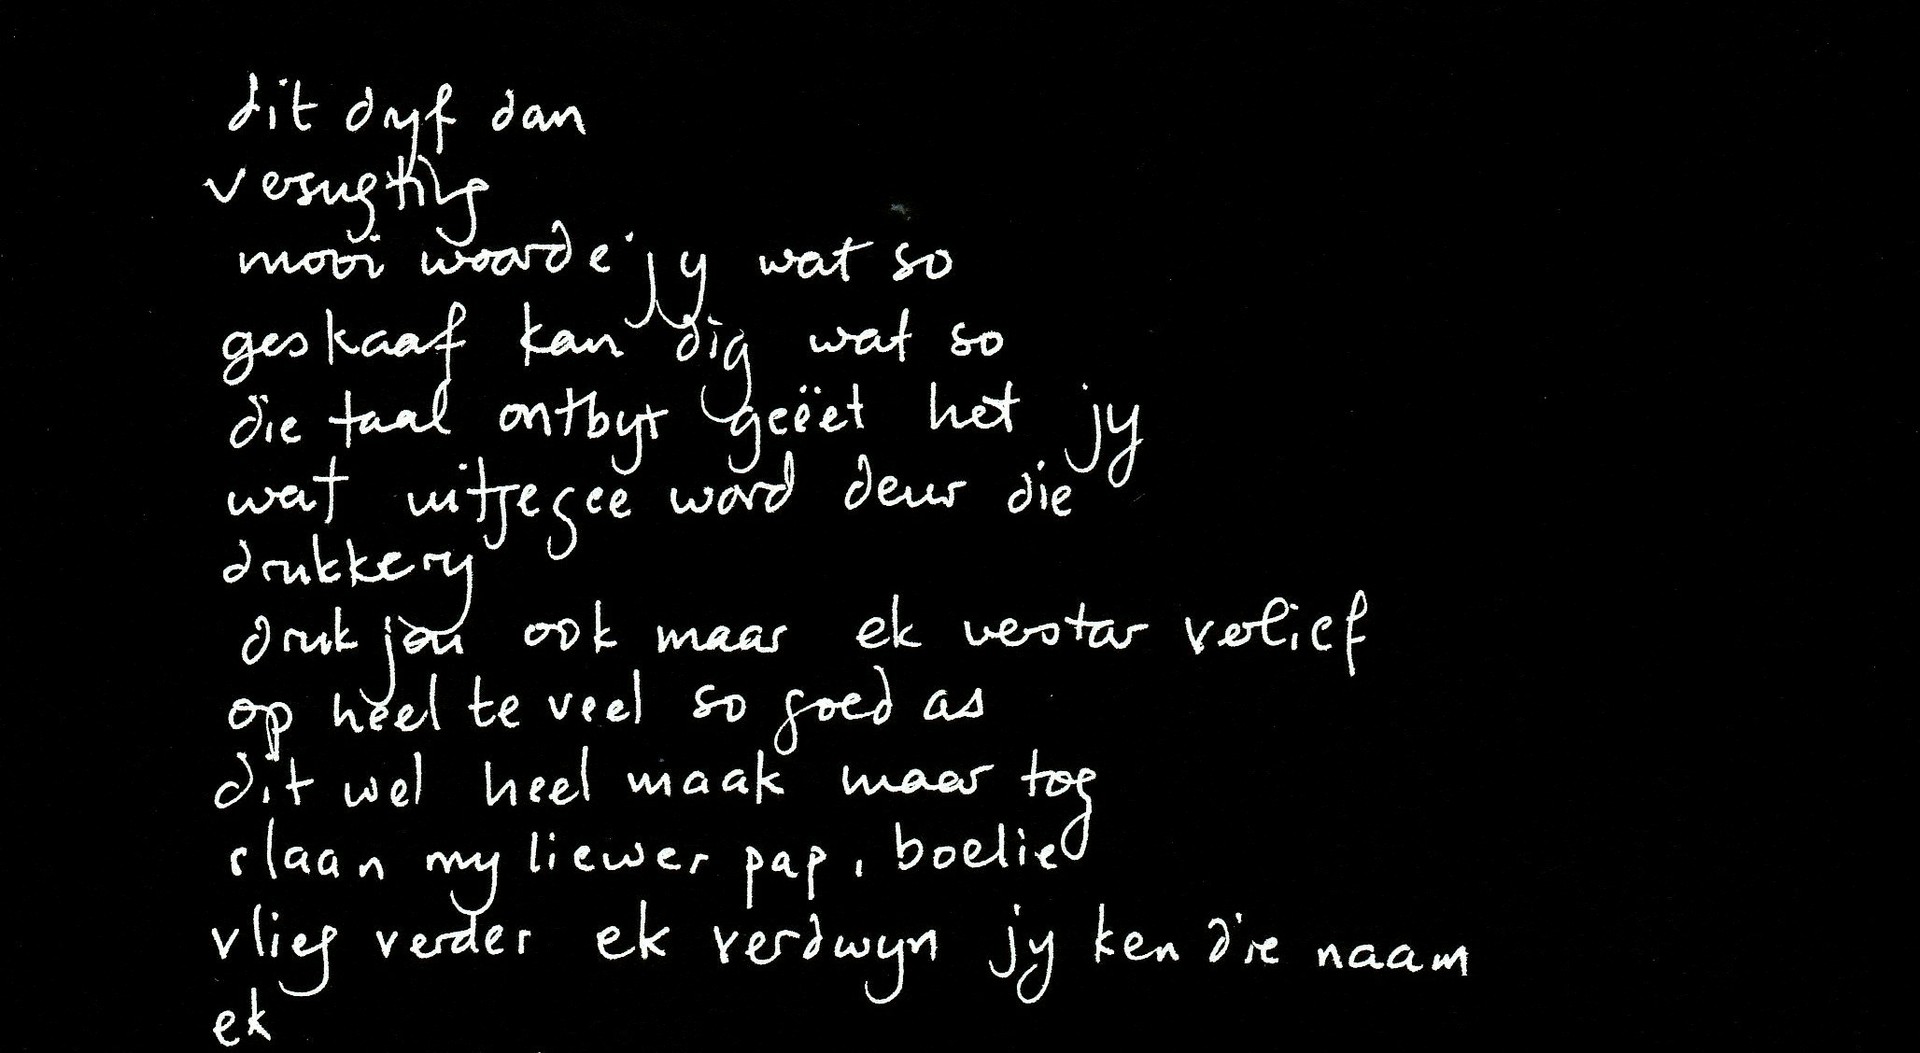 dit dryf dan
versugtig
mooi woorde jy wat so
geskaaf kan dig wat so
die taal ontbyt geëet het jy
wat uitgegee word deur die
drukkery
druk jou ook maar ek verstar verlief
op heel te veel so goed as
dit wel heel maak maar tog
slaan my liewer pap, boelie
vlieg verder ek verdwyn jy ken die naam
ek